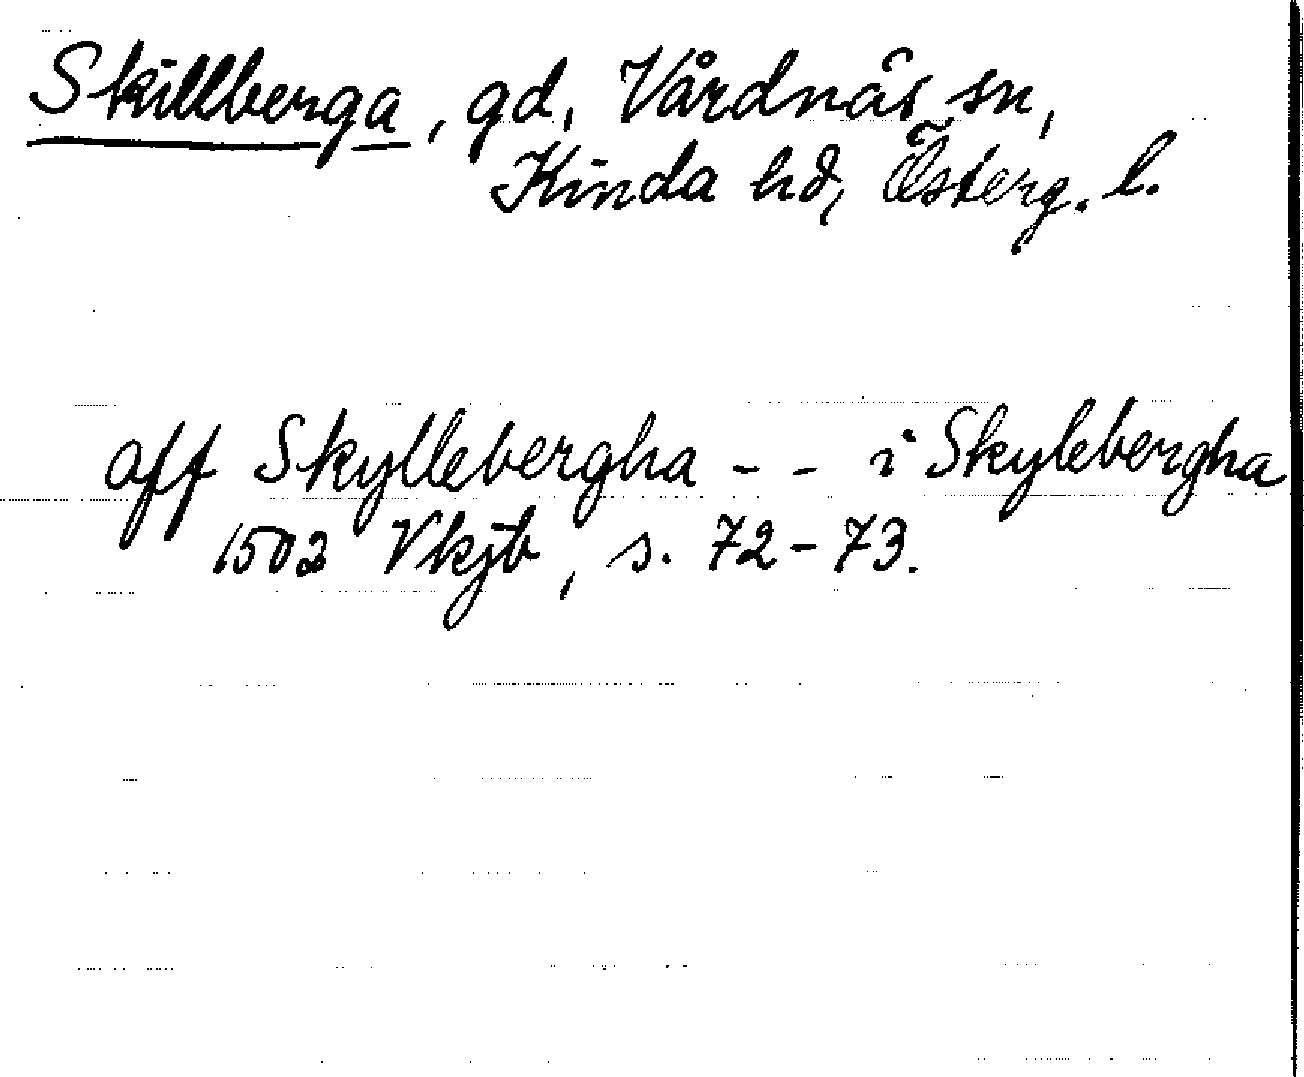 Skillberga, gd, Vårdnäs sn,
Kinda hd, Österg. l.
aff Skyllebergha - - i Skylebergha
1502 Vkjb, s. 72-73.